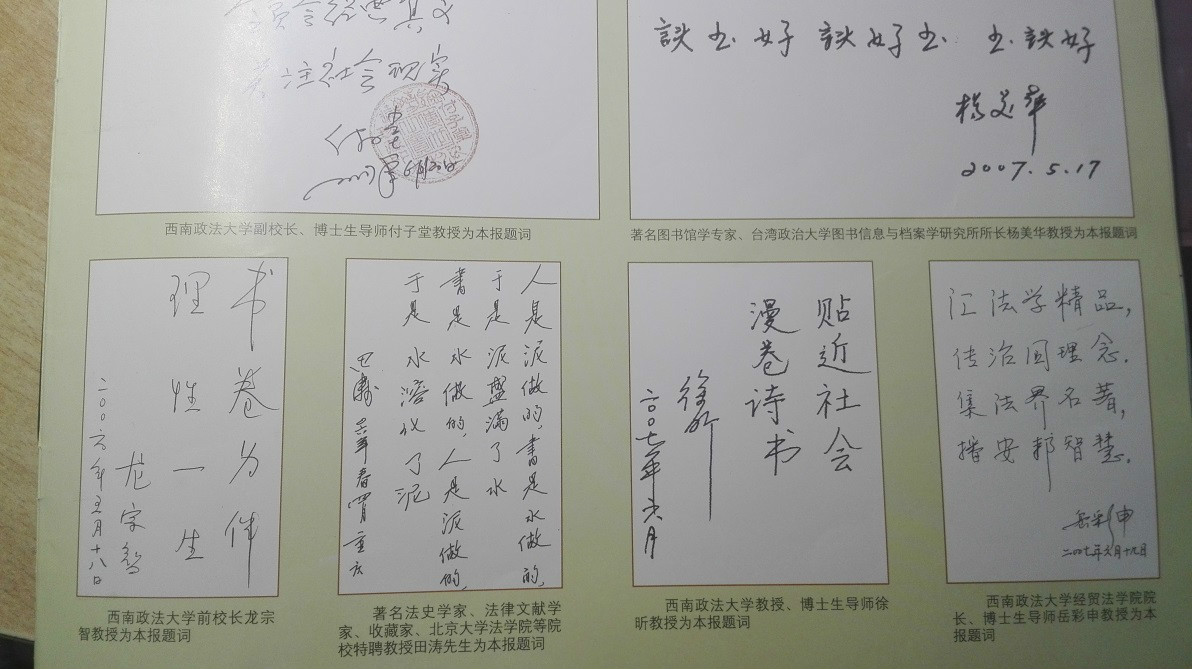 关注社会现实
付子堂
読书好 読好书 书読好
杨美华
2007.5.17
西南政法大学副校长、博士生导师付子堂教授为本报题词
著名图书馆学专家、台湾政治大学图书信息与档案学研究所所长杨美华教授为本报题词
书卷为伴
理性一生
龙宗智
二〇〇六年五月十八日
西南政法大学前校长龙宗
智教授为本报题词
人是泥做的,書是水做的,
于是泥盛满了水
書是水做的,人是泥做的,
于是水溶化了泥
田涛
著名法史学家、法律文献学
家、收藏家、北京大学法学院等院
校特聘教授田涛先生为本报题词
贴近社会
漫卷诗书
徐昕
二〇〇七年六月
西南政法大学教授、博士生导师徐
昕教授为本报题词
汇法学精品,
传治国理念.
集法界名著,
播安邦智慧.
岳彩申
二〇〇七年六月十九日
西南政法大学经贸法学院院
长、博士生导师岳彩申教授为本
报题词